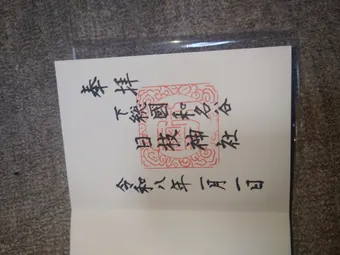 奉拝
下総國和名谷
日枝神社
令和八年一月一日